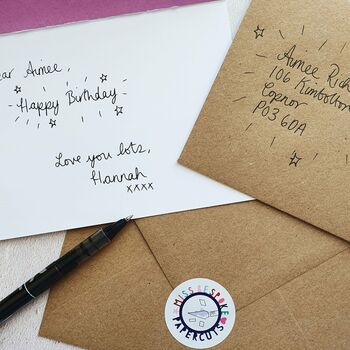 ear Aimee,
Happy Birthday
Love you lots,
Hannah
xxxx
Aimee Rich
106 Kimbolton
Copnor
PO3 6DA
MISS BESPOKE
PAPERCUTS